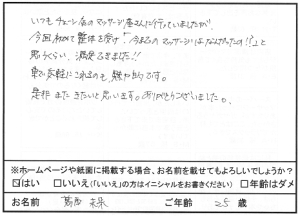 いつもチェーン店のマッサージ屋さんに行っていましたが、
今回初めて整体を受け「今までのマッサージはなんだったの!?」と
思うくらい、満足できました!!
駅で気軽にこれるのも、魅力的です。
是非またきたいと思います。ありがとうございました。
※ホームページや紙面に掲載する場合、お名前を載せてもよろしいでしょうか?
☑はい □いいえ(「いいえ」の方はイニシャルをお書きください) □年齢はダメ
お名前 葛西 未来 ご年齢 25 歳